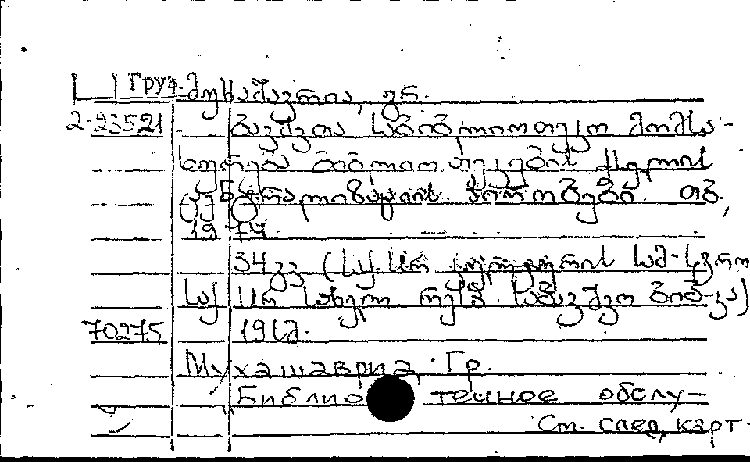 Груз. მუხაშავრია, გრ.
2-23521 ბავშვთა საბიბლიოთეკო მომსა-
ხურება ბიბლიოთეკების ქსელის
ცენტრალიზაციის პირობებში. თბ.,
1977.
34 გვ (საქ. სსრ კულტურის სამ-სტრო
საქ. სსრ სახელი რესპ. საბავშვო ბიბ-კა)
70275 191მ.
Мухашаврия, Гр.
Библиотечное обслу-
См. след. карт.